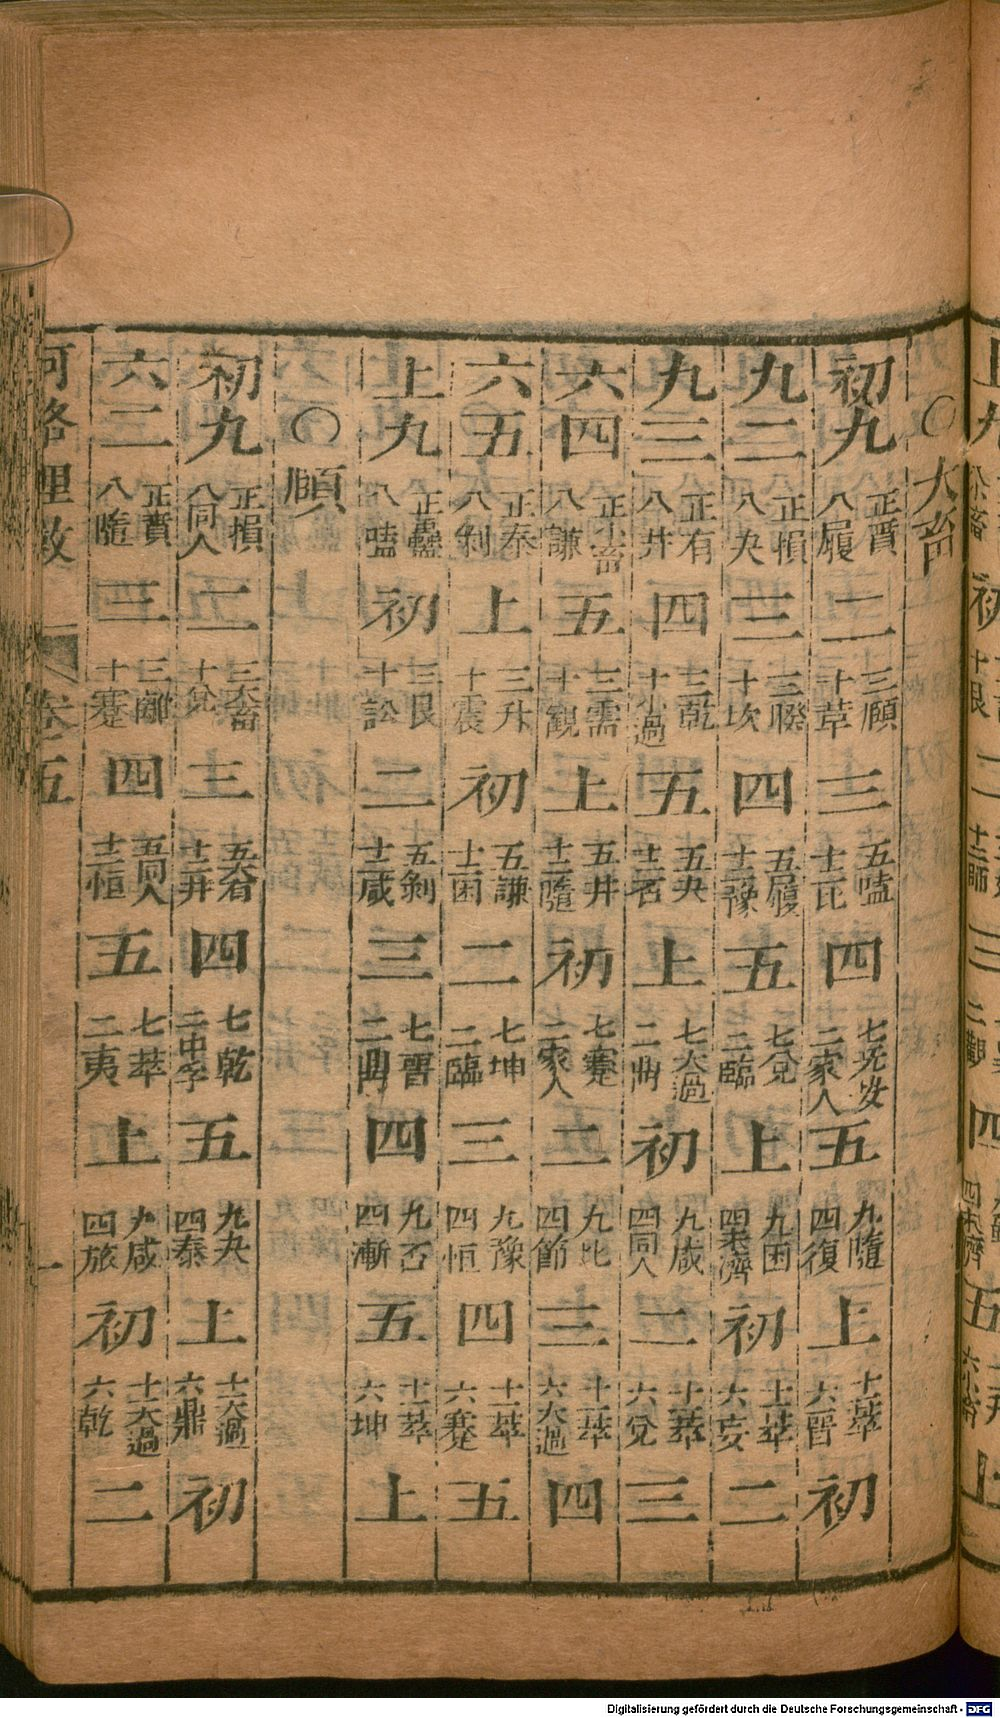 ○大畜
初九 正賁 八履 二 三頤 十革 三 五嗑 十二比 四 七无妄 二家人 五 九隨 四復 上 十一萃 六晉 初
九二 正損 八夬 三 三睽 十坎 四 五履 十二豫 五 七兌 二臨 上 九困 四未濟 初 十一萃 六妄 二
九三 正有 八井 四 三乾 十小過 五 五夬 上 七大過 初 九咸 四同人 二 十一萃 六兌 三
六四 正小畜 八謙 五 三需 十觀 上 五井 十二隨 初 七蹇 二家人 二 九比 四節 三 十一萃 六大過 四
六五 正泰 八剝 上 三升 十震 初 五謙 十二困 二 七坤 二臨 三 九豫 四恒 四 十一萃 六蹇 五
上九 正蠱 八嗑 初 三艮 十訟 二 五剝 十二咸 三 七晉 四 九否 四漸 五 十一萃 六坤 上
○頤
初九 正損 八同人 二 三大畜 十兌 三 五大有 十二井 四 七乾 二中孚 五 九夬 四泰 上 十一大過 六鼎 初
六二 正賁 八隨 三 三離 十蹇 四 五同人 十二恒 五 七萃 二夷 上 九咸 四旅 初 十一大過 六乾 二
河洛理數 卷五
Digitalisierung gefördert durch die Deutsche Forschungsgemeinschaft - DFG